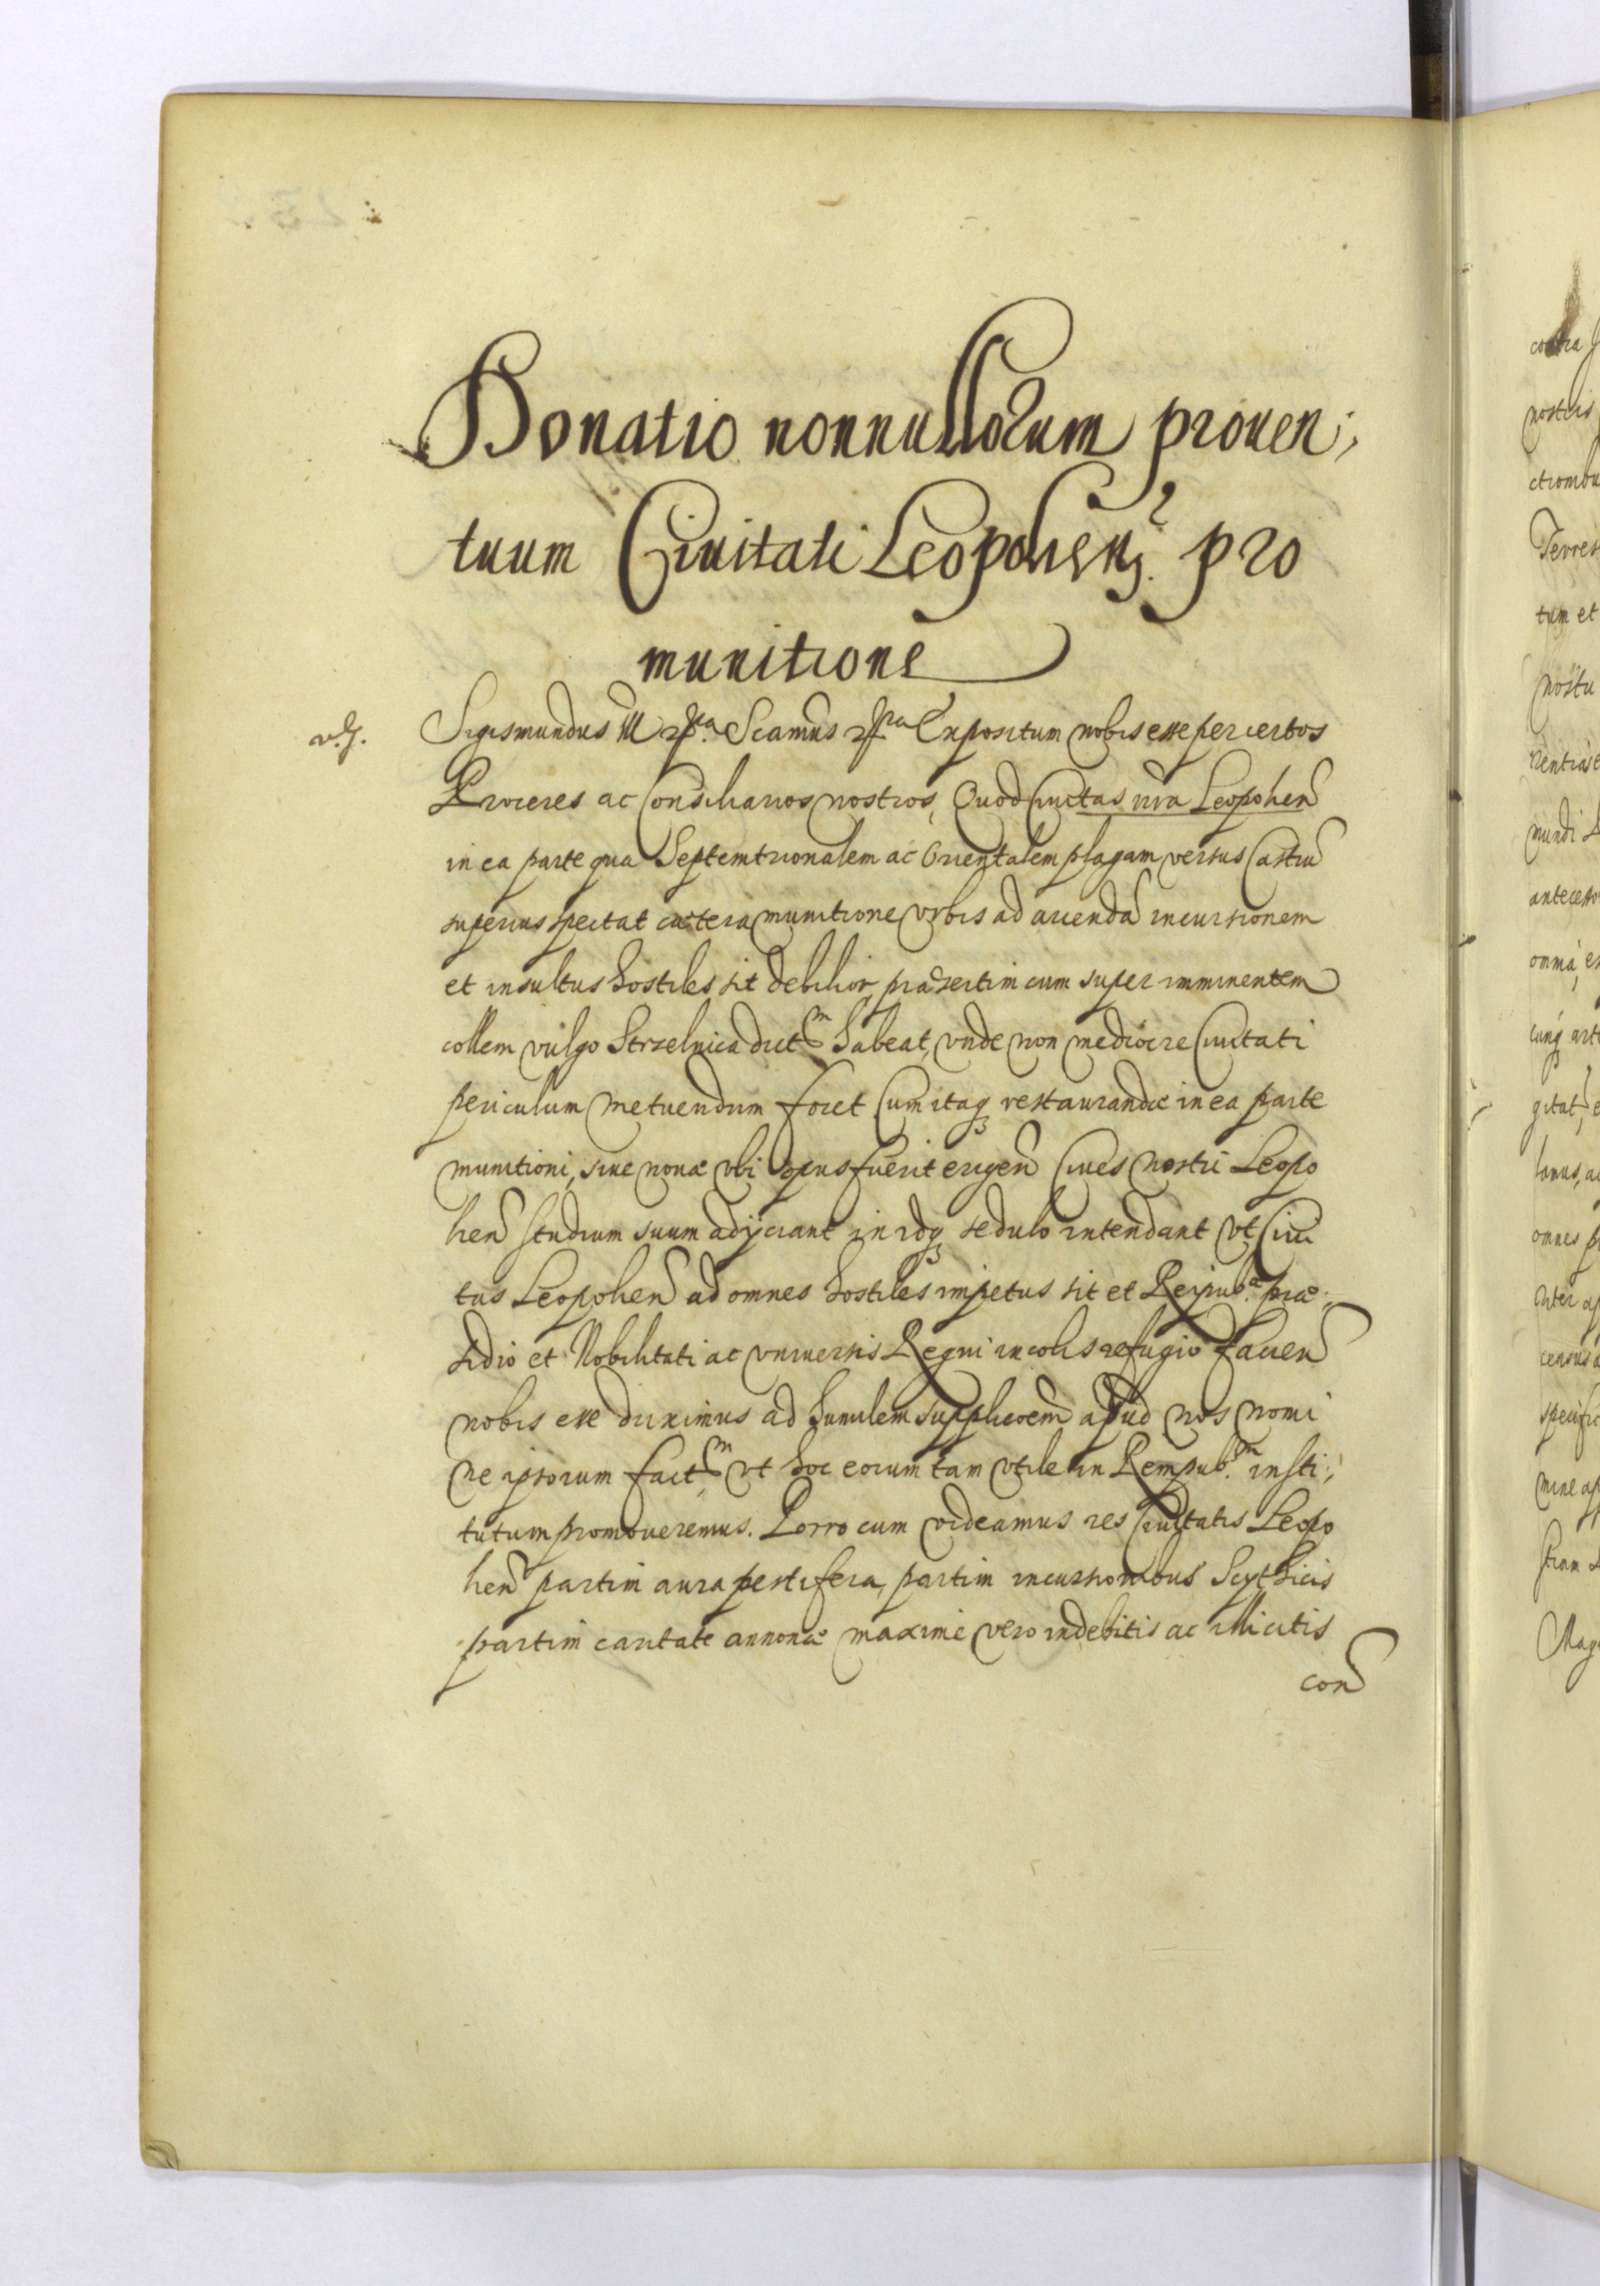 Donatio nonnullorum prouen:
tuum Ciuitati Leopolien. pro
munitione
Sigismundus III Scamus Expositum nobis esse per certos
Proceres ac Consiliarios nostros, Quod Ciuitas nra Leopolien
in ea parte qua Septemtrionalem ac Orientalem plagam versus Castru
superius spectat caetera munitione Vrbis ad arcenda incursionem
et insultus hostiles sit debilior praesertim cum super imminentem
collem vulgo Strzelnica dictm habeat, vnde non mediocre Ciuitati
periculum metuendum foret Cum itaq restaurandae in ea parte
munitioni, siue nouae vbi opus fuerit erigen Ciues nostri Leopo
lien studium suum adijciant in idq sedulo intendant vt Ciui
tas Leopolien ad omnes hostiles impetus sit et Reipub. prae:
sidio et Nobilitati ac vniuersis Regni incolis refugio facien
nobis esse duximus ad humilem supplicoem apud nos nomi
ne ipsorum factm vt hoc eorum tam vtile in Rempub.m insti:
tutum promoueremus. Porro cum videamus res Ciuitatis Leopo
lien partim aura pestifera, partim incursionibus Scythicis
partim caritate annonae maxime vero indebitis ac illicitis
con
contra
nostris
ctionibu
Terres
tum et
nostu
mundi
antecesso
omnes
Mag